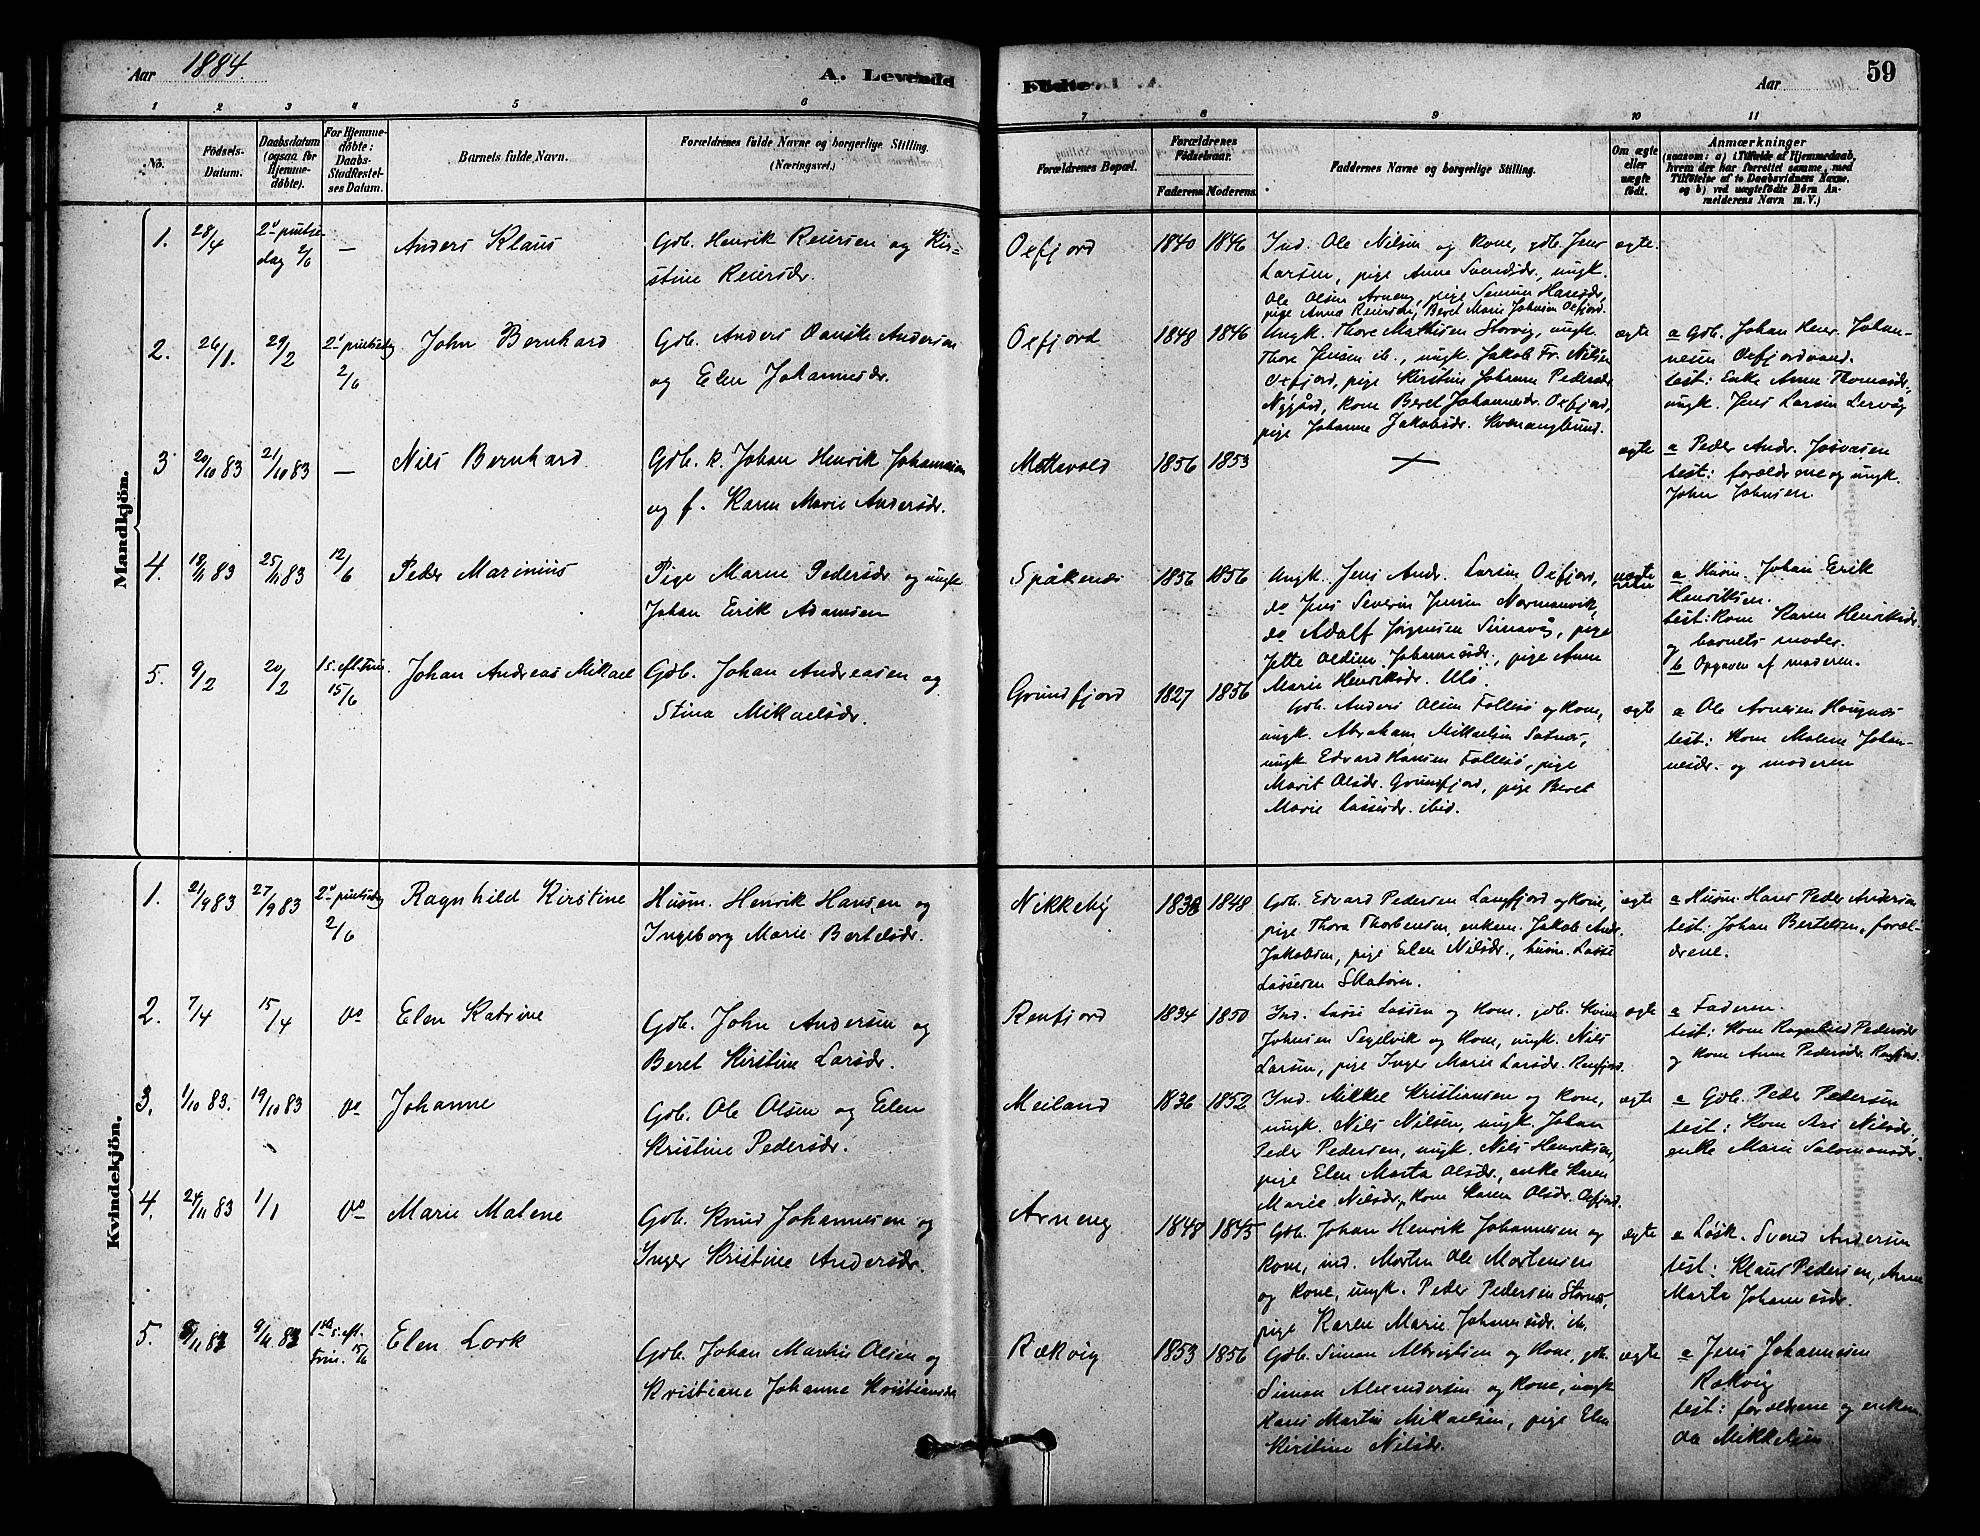 Aar 1884.
A. Levende
Fødte.
Aar
59
1 2 3 4 5 6 7 8 9 10 11
No.
Fødsels-
Datum.
Daabsdatum
(ogsaa for
Hjemme-
døbte).
For Hjemme-
døbte:
Daabs-
Stadfæstel-
ses Datum.
Barnets fulde Navn.
Forældrenes fulde Navne og borgerlige Stilling.
(Næringsvei.)
Forældrenes Bopæl.
Forældrenes
Fødselsaar.
Faderens Moderens
Faddernes Navne og borgerlige Stilling.
Om ægte
eller
uægte
født.
Anmærkninger
(saasom: a) i Tilfælde af Hjemmedaab,
hvem der har forrettet samme, med
Tilføielse af to Daabsvidners Navne,
og b) ved uægtefødte Børn An-
melderens Navn m. V.)
Mandkjön.
1. 28/4
2d pintse
dag 2/6
—
Anders Klaus
Gdb. Henrik Reiersen og Kir-
stine Reiersdr.
Oxfjord
1840 1846
Ind. Ole Nilsen og Kone, gdb. Jens
Larsen, pige Anne Svendsdr., ungk.
Ole Olsen Arneng, pige Hansdr.,
pige Anna Reiersdr., Beret Marie Johnsen Oxfjord.
ægte.
2. 26/1. 29/2
2d pintsedag
2/6
John Bernhard
Gdb. Anders Danske Andersen
og Elen Johannesdr.
Oxfjord
1848 1846
Ungk. Thore Mathisen Storvig, ungk.
Thore Jensen ib., ungk. Jakob Fr. Nilsen
Oxfjord, pige Kirstine Johanne Pedersdr.
Nygård, kone Beret Johannesdr. Oxfjord,
pige Johanne Jakobsdr. Kvænangbund.
ægte
a Gdb. Johan Henr. Johan-
nesen Oxfjordvand.
test: Enke Anne Thomasdr.,
ungk. Jens Larsen Lervåg
3 20/10 83 21/10 83 —
Nils Bernhard
Gdb. k. Johan Henrik Johannesen
og f. Karen Marie Andersdr.
Mettevold
1856 1853
ægte
a Peder Andr. Josvasen
test: forældrene og ungk.
John Johnsen.
4. 19/11 83 25/11 83 12/6
Peder Marinius
Pige Marie Pedersdr og ungk
Johan Erik Adamsen
Spåkenes
1856 1856
Ungk. Jens Andr. Larsen Oxfjord,
do Jens Severin Jensen Normanvik,
do Adolf Jørgensen, pige
Jette Oldine Johannesdr., pige Anne
Marie Henriksdr. Ulø.
uægte
a Husm. Johan Erik
Henriksen.
test: Kone Karen Henriksdr.
og barnets moder.
b Opgaven af moderen.
5. 9/2 20/2
1 s. eft. Trin.
15/6
Johan Andreas Mikael
Gdb. Johan Andreasen og
Stina Mikaelsdr.
Grundfjord
1827 1856
Gdb. Anders Olsen Follesø og Kone,
ungk. Abraham Mikkelsen,
ungk Edvard Hansen Follesø, pige
Marit Olsdr. Grundfjord, pige Beret
Marie Lassesdr. ibid.
ægte
a Ole Arnesen Haugnes
test: Kone Malene Johan-
nesdr. og moderen
Kvindekjön.
1. 21/9 83 27/9 83
2d pintsedag
2/6
Ragnhild Kirstine
Husm. Henrik Hansen og
Ingeborg Marie Bertelsdr.
Nikkeby
1838 1848
Gdb. Edvard Pedersen Langfjord og Kone,
pige Thora Thorbensen, enkem. Jakob Andr.
Jakobsen, pige Elen Nilsdr., husm. Lasse
Lassesen Skatøren.
ægte
a Husm. Hans Peder Andersen
test: Johan Bertelsen, foræl-
drene.
2. 7/4 15/4 do
Elen Katrine
Gdb. John Andersen og
Beret Kirstine Larsdr.
Renfjord
1834 1850
Ind. Lasse Lassen og Kone, gdb.
Johnsen Segelvik og Kone, ungk. Nils
Larsen, pige Inger Marie Larsdr. Renfjord.
ægte
a Faderen.
test: Kone Ragnhild Pedersdr
og kone Anne Pedersdr. Renfjord.
3. 1/10 83. 19/10 83 do
Johanne
Gdb. Ole Olsen og Elen
Kristine Pedersdr.
Meiland
1836 1852
Ind. Mikkel Kristiansen og Kone,
ungk. Nils Nilsen, ungk. Johan
Peder Pedersen, ungk. Nils Henriksen,
pige Elen Marta Olsdr., enke Karen
Marie Nilsdr., kone Karen Olsdr. Oxfjord.
ægte
a Gdb. Peder Pedersen
test: Kone Nilsdr,
enke Marie Salomonsdr.
4. 24/11 83 1/1 do
Marie Malene
Gdb. Knud Johannesen og
Inger Kristine Andersdr.
Arneng
1848 1845
Gdb. Johan Henrik Johannesen og
Kone, ind. Morten Ole Mortensen
og Kone, ungk. Peder Pedersen Stornes,
pige Karen Marie Johannesdr. ib.
ægte
a Løsk. Svend Andersen
test: Klaus Pedersen, Anne
Marta Johannesdr.
5. 5/11 83 9/11 83
1ste s. eft.
Trin. 15/6
Elen Lork
Gdb. Johan Martin Olsen og
Kristiane Johanne Kristiansdr
Rækvig
1853 1856
Gdb. Simon Albrigtsen og Kone, gdb.
Simon Alexandersen og Kone, ungk
Hans Martin Mikaelsen, pige Elen
Kirstine Nilsdr.
ægte
a Jens Johannesen
Rækvig
test: forældrene og enkem
Mikkelsen